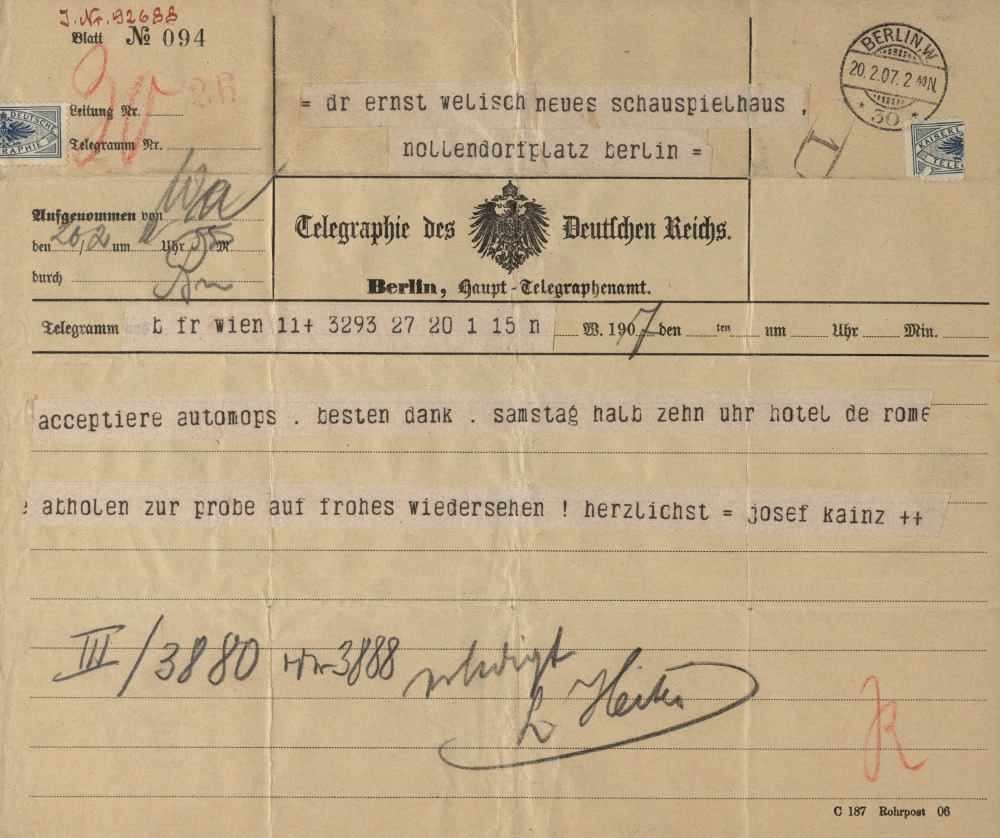 J.Nr. 92688
Blatt № 094
26
Leitung Nr.
Telegramm Nr.
DEUTSCHE
GRAPHIE
= dr ernst welisch neues schauspielhaus ,
nollendorfplatz berlin =
BERLIN.W
20.2.07. 2 N.
* 30 *
KAISERL
TELE
Aufgenommen von Wa
den 20/2 um Uhr 55 M
durch
Telegraphie des Deutschen Reichs.
Berlin, Haupt-Telegraphenamt.
Telegramm b fr wien 11+ 3293 27 20 1 15 n W. 1907 den ten um Uhr Min.
acceptiere automops . besten dank . samstag halb zehn uhr hotel de rome
e abholen zur probe auf frohes wiedersehen ! herzlichst = josef kainz ++
III/3880 3888 erledigt
K
C 187 Rohrpost 06